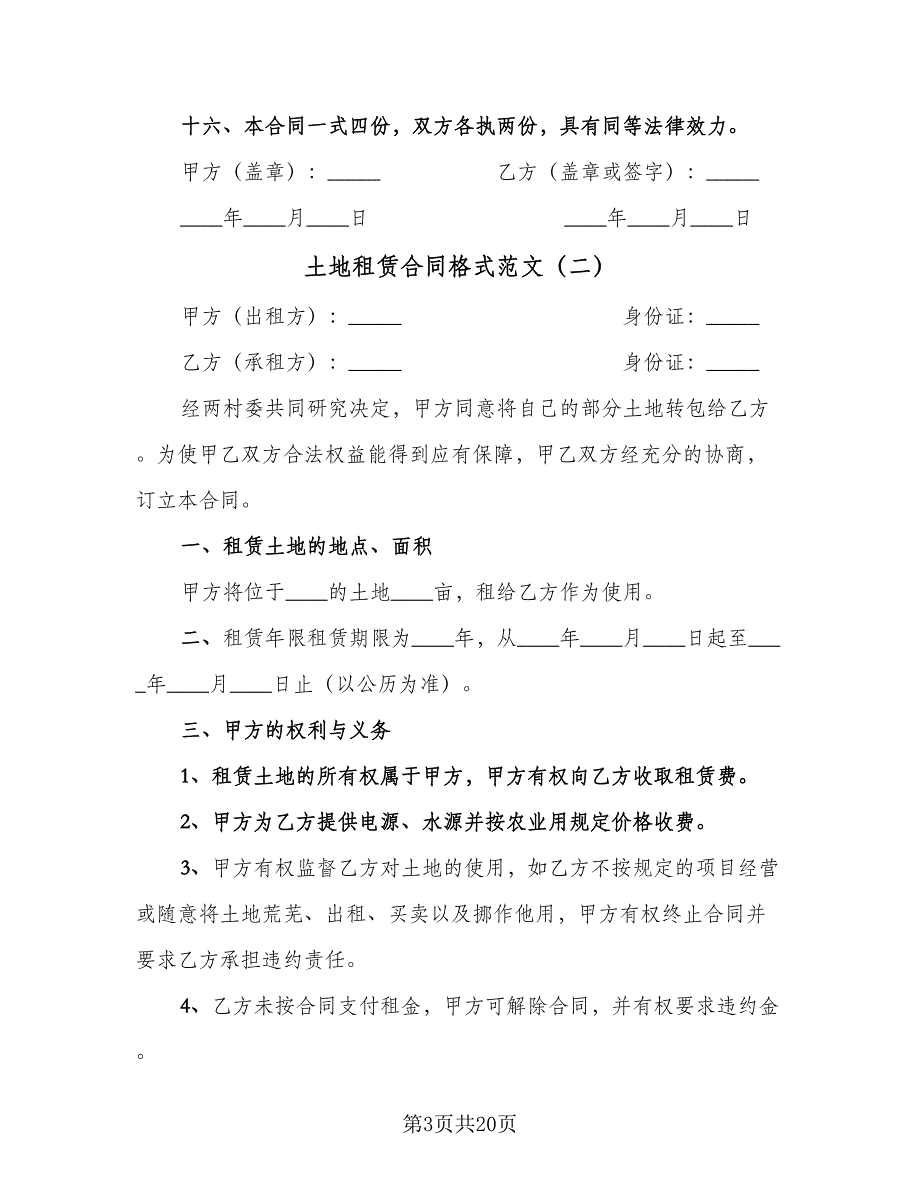 十六、本合同一式四份，双方各执两份，具有同等法律效力。
甲方（盖章）：_____ 乙方（盖章或签字）：_____
____年____月____日 ____年____月____日
土地租赁合同格式范文（二）
甲方（出租方）：_____ 身份证：_____
乙方（承租方）：_____ 身份证：_____
经两村委共同研究决定，甲方同意将自己的部分土地转包给乙方
。为使甲乙双方合法权益能得到应有保障，甲乙双方经充分的协商，
订立本合同。
一、租赁土地的地点、面积
甲方将位于____的土地____亩，租给乙方作为使用。
二、租赁年限租赁期限为____年，从____年____月____日起至___
_年____月____日止（以公历为准）。
三、甲方的权利与义务
1、租赁土地的所有权属于甲方，甲方有权向乙方收取租赁费。
2、甲方为乙方提供电源、水源并按农业用规定价格收费。
3、甲方有权监督乙方对土地的使用，如乙方不按规定的项目经营
或随意将土地荒芜、出租、买卖以及挪作他用，甲方有权终止合同并
要求乙方承担违约责任。
4、乙方未按合同支付租金，甲方可解除合同，并有权要求违约金
。
第3页共20页